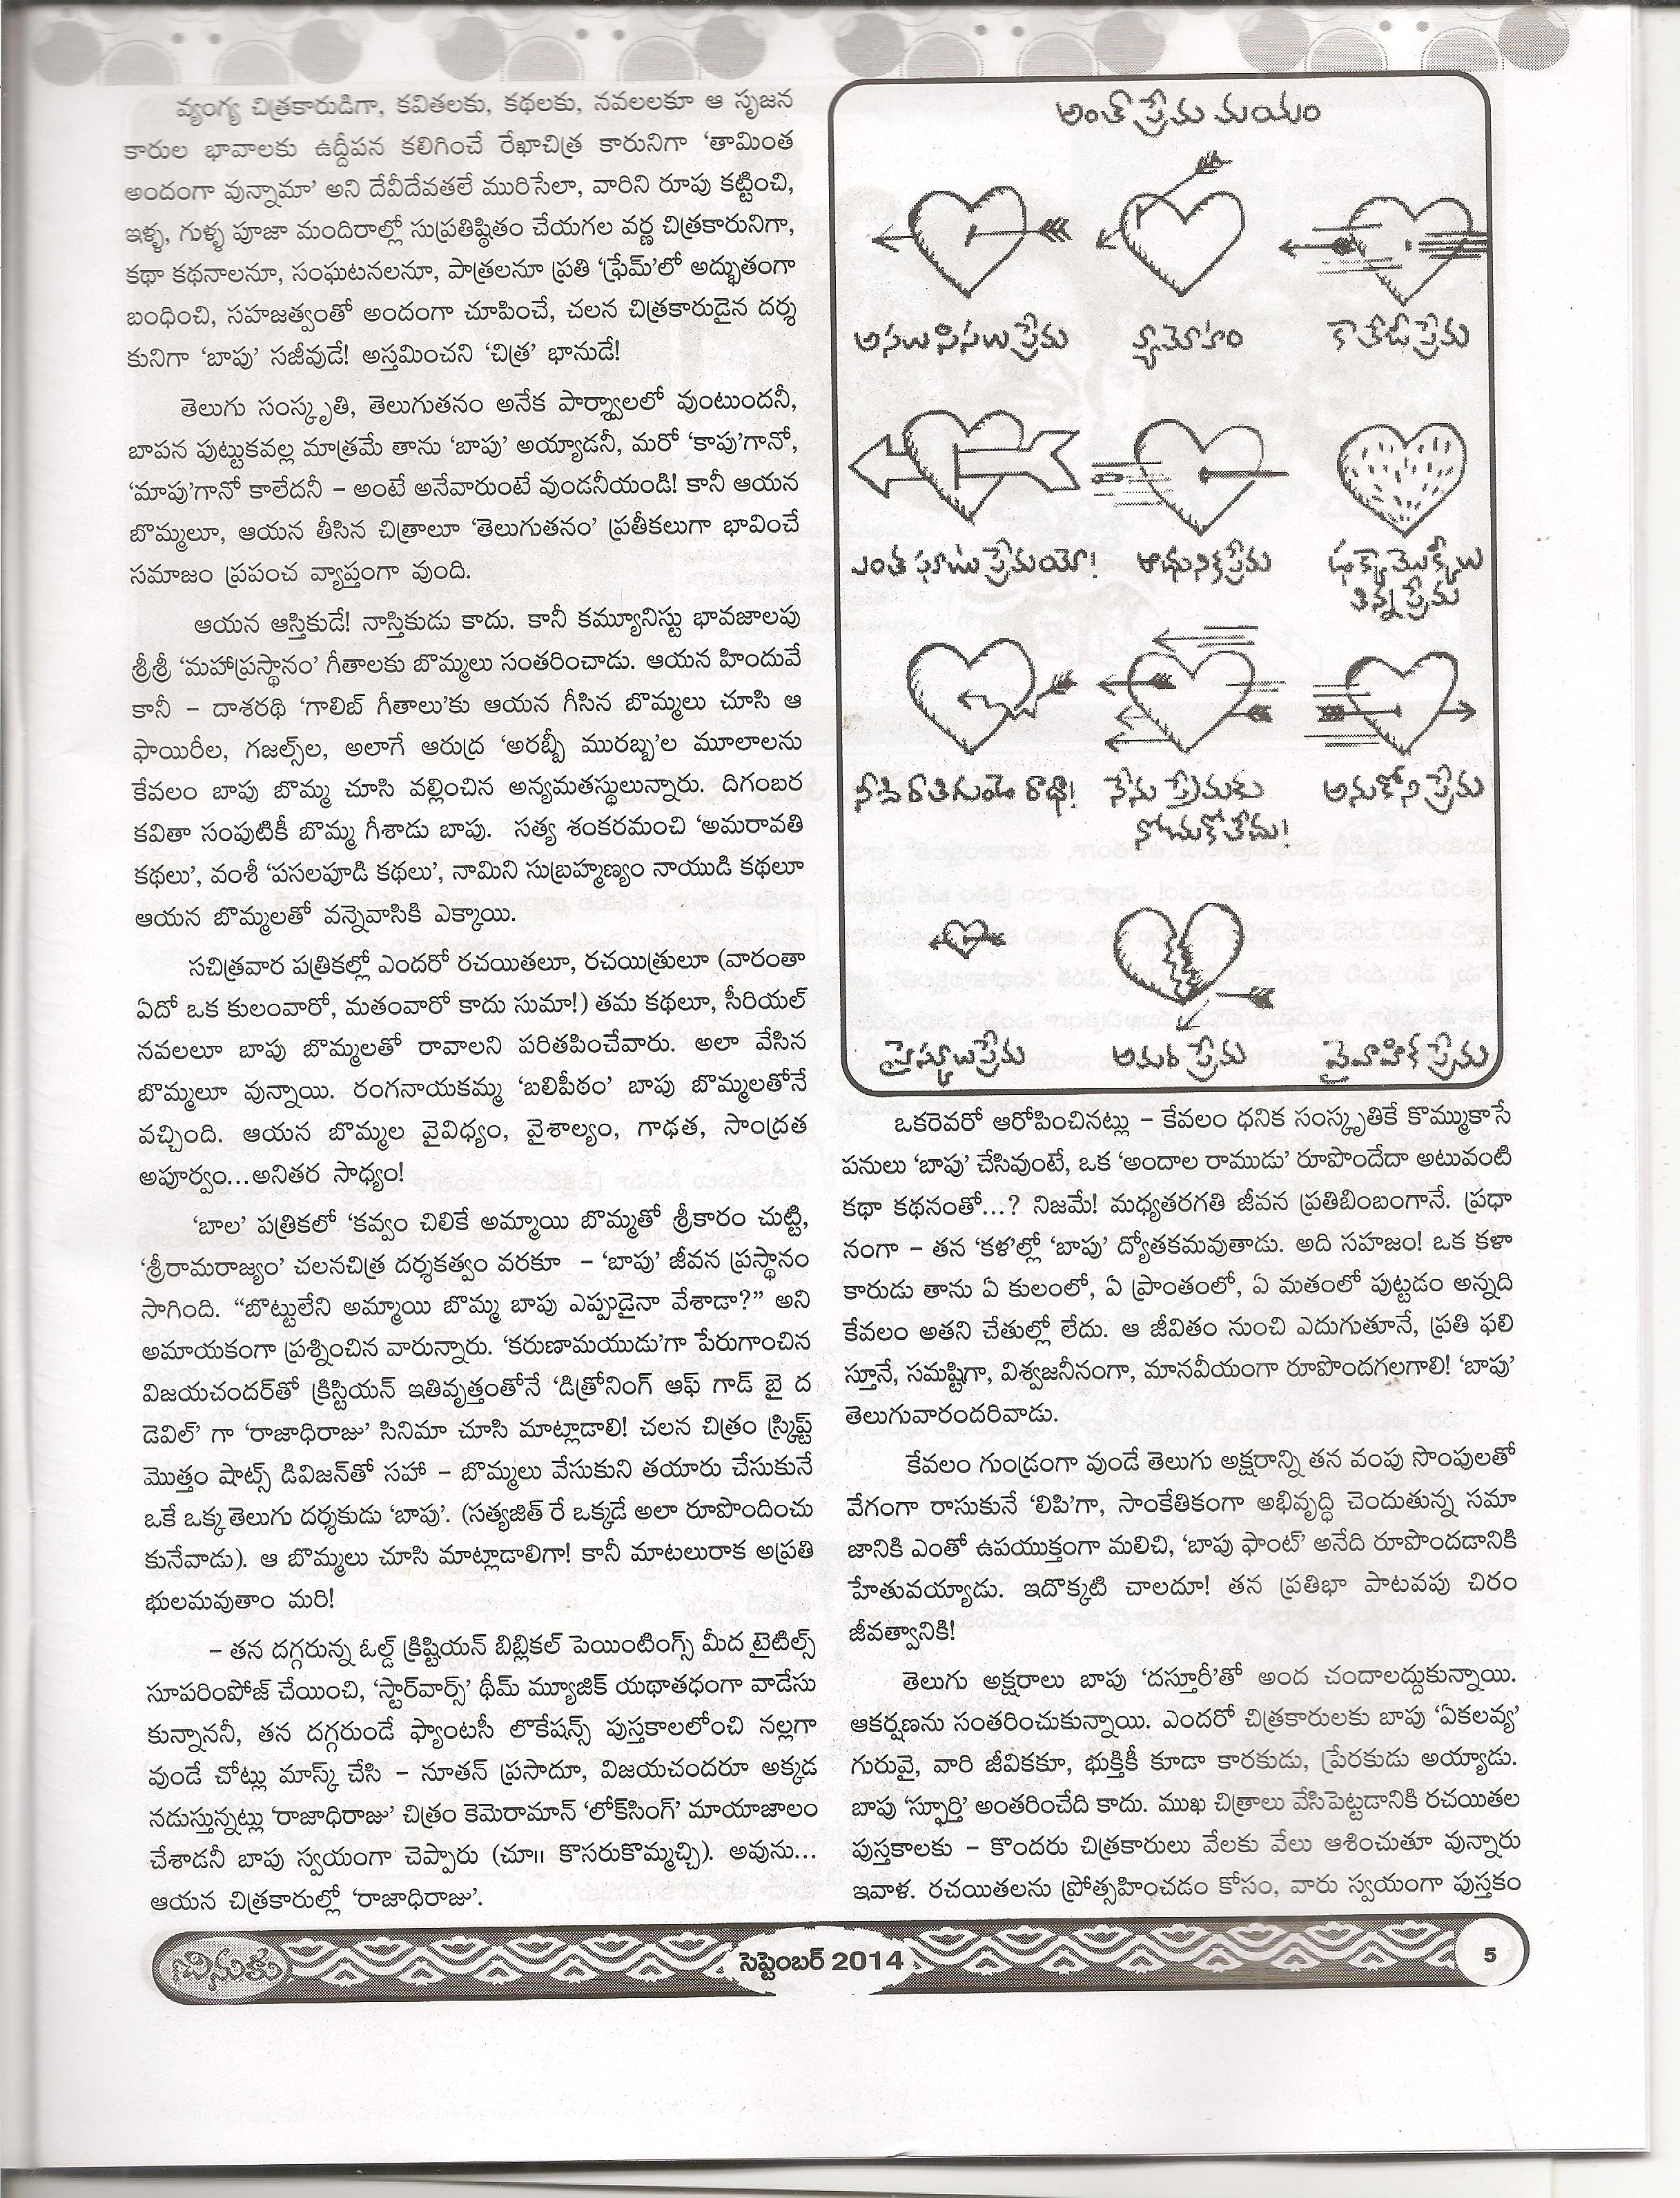 వ్యంగ్య చిత్రకారుడిగా, కవితలకు, కథలకు, నవలలకూ ఆ సృజన
కారుల భావాలకు ఉద్దీపన కలిగించే రేఖాచిత్ర కారునిగా ‘తామింత
అందంగా వున్నామా’ అని దేవీదేవతలే మురిసేలా, వారిని రూపు కట్టించి,
ఇళ్ళ, గుళ్ళ పూజా మందిరాల్లో సుప్రతిష్ఠితం చేయగల వర్ణ చిత్రకారునిగా,
కథా కథనాలనూ, సంఘటనలనూ, పాత్రలనూ ప్రతి ‘ఫ్రేమ్’లో అద్భుతంగా
బంధించి, సహజత్వంతో అందంగా చూపించే, చలన చిత్రకారుడైన దర్శ
కునిగా ‘బాపు’ సజీవుడే! అస్తమించని ‘చిత్ర’ భానుడే!
తెలుగు సంస్కృతి, తెలుగుతనం అనేక పార్శ్వాలలో వుంటుందనీ,
బాపన పుట్టుకవల్ల మాత్రమే తాను ‘బాపు’ అయ్యాడనీ, మరో ‘కాపు’గానో,
‘మాపు’గానో కాలేదనీ – అంటే అనేవారుంటే వుండనీయండి! కానీ ఆయన
బొమ్మలూ, ఆయన తీసిన చిత్రాలూ ‘తెలుగుతనం’ ప్రతీకలుగా భావించే
సమాజం ప్రపంచ వ్యాప్తంగా వుంది.
ఆయన ఆస్తికుడే! నాస్తికుడు కాదు. కానీ కమ్యూనిస్టు భావజాలపు
శ్రీశ్రీ ‘మహాప్రస్థానం’ గీతాలకు బొమ్మలు సంతరించాడు. ఆయన హిందువే
కానీ – దాశరథి ‘గాలిబ్ గీతాలు’కు ఆయన గీసిన బొమ్మలు చూసి ఆ
ఫాయిరీల, గజల్స్‌ల, అలాగే ఆరుద్ర ‘అరబ్బీ మురబ్బ’ల మూలాలను
కేవలం బాపు బొమ్మ చూసి వల్లించిన అన్యమతస్థులున్నారు. దిగంబర
కవితా సంపుటికీ బొమ్మ గీశాడు బాపు. సత్య శంకరమంచి ‘అమరావతి
కథలు’, వంశీ ‘పసలపూడి కథలు’, నామిని సుబ్రహ్మణ్యం నాయుడి కథలూ
ఆయన బొమ్మలతో వన్నెవాసికి ఎక్కాయి.
సచిత్రవార పత్రికల్లో ఎందరో రచయితలూ, రచయిత్రులూ (వారంతా
ఏదో ఒక కులంవారో, మతంవారో కాదు సుమా!) తమ కథలూ, సీరియల్
నవలలూ బాపు బొమ్మలతో రావాలని పరితపించేవారు. అలా వేసిన
బొమ్మలూ వున్నాయి. రంగనాయకమ్మ ‘బలిపీఠం’ బాపు బొమ్మలతోనే
వచ్చింది. ఆయన బొమ్మల వైవిధ్యం, వైశాల్యం, గాఢత, సాంద్రత
అపూర్వం...అనితర సాధ్యం!
‘బాల’ పత్రికలో ‘కవ్వం చిలికే అమ్మాయి బొమ్మతో శ్రీకారం చుట్టి,
‘శ్రీరామరాజ్యం’ చలనచిత్ర దర్శకత్వం వరకూ – ‘బాపు’ జీవన ప్రస్థానం
సాగింది. “బొట్టులేని అమ్మాయి బొమ్మ బాపు ఎప్పుడైనా వేశాడా?” అని
అమాయకంగా ప్రశ్నించిన వారున్నారు. ‘కరుణామయుడు’గా పేరుగాంచిన
విజయచందర్‌తో క్రిస్టియన్ ఇతివృత్తంతోనే ‘డిత్రోనింగ్ ఆఫ్ గాడ్ బై ద
డెవిల్’ గా ‘రాజాధిరాజు’ సినిమా చూసి మాట్లాడాలి! చలన చిత్రం స్క్రిప్ట్
మొత్తం షాట్స్ డివిజన్‌తో సహా – బొమ్మలు వేసుకుని తయారు చేసుకునే
ఒకే ఒక్క తెలుగు దర్శకుడు ‘బాపు’. (సత్యజిత్ రే ఒక్కడే అలా రూపొందించు
కునేవాడు). ఆ బొమ్మలు చూసి మాట్లాడాలిగా! కానీ మాటలురాక అప్రతి
భులమవుతాం మరి!
– తన దగ్గరున్న ఓల్డ్ క్రిష్టియన్ బిబ్లికల్ పెయింటింగ్స్ మీద టైటిల్స్
సూపరింపోజ్ చేయించి, ‘స్టార్‌వార్స్’ థీమ్ మ్యూజిక్ యథాతధంగా వాడేసు
కున్నాననీ, తన దగ్గరుండే ఫ్యాంటసీ లొకేషన్స్ పుస్తకాలలోంచి నల్లగా
వుండే చోట్లు మాస్క్ చేసి – నూతన్ ప్రసాదూ, విజయచందరూ అక్కడ
నడుస్తున్నట్లు ‘రాజాధిరాజు’ చిత్రం కెమెరామాన్ ‘లోక్‌సింగ్’ మాయాజాలం
చేశాడనీ బాపు స్వయంగా చెప్పారు (చూ॥ కొసరుకొమ్మచ్చి). అవును...
ఆయన చిత్రకారుల్లో ‘రాజాధిరాజు’.
అంతా ప్రేమ మయం
అసలు సిసలు ప్రేమ
వ్యామోహం
కాలేజీ ప్రేమ
ఎంత ఘాటు ప్రేమయో!
ఆధునిక ప్రేమ
ఢక్కామొక్కీలు
తిన్న ప్రేమ
నీది రాతిగుండె రాధా!
నేను ప్రేమకు
నోచుకోలేదు!
అనుకోని ప్రేమ
హైస్కూలుప్రేమ
అమర ప్రేమ
వైవాహిక ప్రేమ
ఒకరెవరో ఆరోపించినట్లు – కేవలం ధనిక సంస్కృతికే కొమ్ముకాసే
పనులు ‘బాపు’ చేసివుంటే, ఒక ‘అందాల రాముడు’ రూపొందేదా అటువంటి
కథా కథనంతో...? నిజమే! మధ్యతరగతి జీవన ప్రతిబింబంగానే. ప్రధా
నంగా – తన ‘కళ’ల్లో ‘బాపు’ ద్యోతకమవుతాడు. అది సహజం! ఒక కళా
కారుడు తాను ఏ కులంలో, ఏ ప్రాంతంలో, ఏ మతంలో పుట్టడం అన్నది
కేవలం అతని చేతుల్లో లేదు. ఆ జీవితం నుంచి ఎదుగుతూనే, ప్రతి ఫలి
స్తూనే, సమష్టిగా, విశ్వజనీనంగా, మానవీయంగా రూపొందగలగాలి! ‘బాపు’
తెలుగువారందరివాడు.
కేవలం గుండ్రంగా వుండే తెలుగు అక్షరాన్ని తన వంపు సొంపులతో
వేగంగా రాసుకునే ‘లిపి’గా, సాంకేతికంగా అభివృద్ధి చెందుతున్న సమా
జానికి ఎంతో ఉపయుక్తంగా మలిచి, ‘బాపు ఫాంట్’ అనేది రూపొందడానికి
హేతువయ్యాడు. ఇదొక్కటి చాలదూ! తన ప్రతిభా పాటవపు చిరం
జీవత్వానికి!
తెలుగు అక్షరాలు బాపు ‘దస్తూరీ’తో అంద చందాలద్దుకున్నాయి.
ఆకర్షణను సంతరించుకున్నాయి. ఎందరో చిత్రకారులకు బాపు ‘ఏకలవ్య’
గురువై, వారి జీవికకూ, భుక్తికీ కూడా కారకుడు, ప్రేరకుడు అయ్యాడు.
బాపు ‘స్ఫూర్తి’ అంతరించేది కాదు. ముఖ చిత్రాలు వేసిపెట్టడానికి రచయితల
పుస్తకాలకు – కొందరు చిత్రకారులు వేలకు వేలు ఆశించుతూ వున్నారు
ఇవాళ. రచయితలను ప్రోత్సహించడం కోసం, వారు స్వయంగా పుస్తకం
చినుకు
సెప్టెంబర్ 2014
5